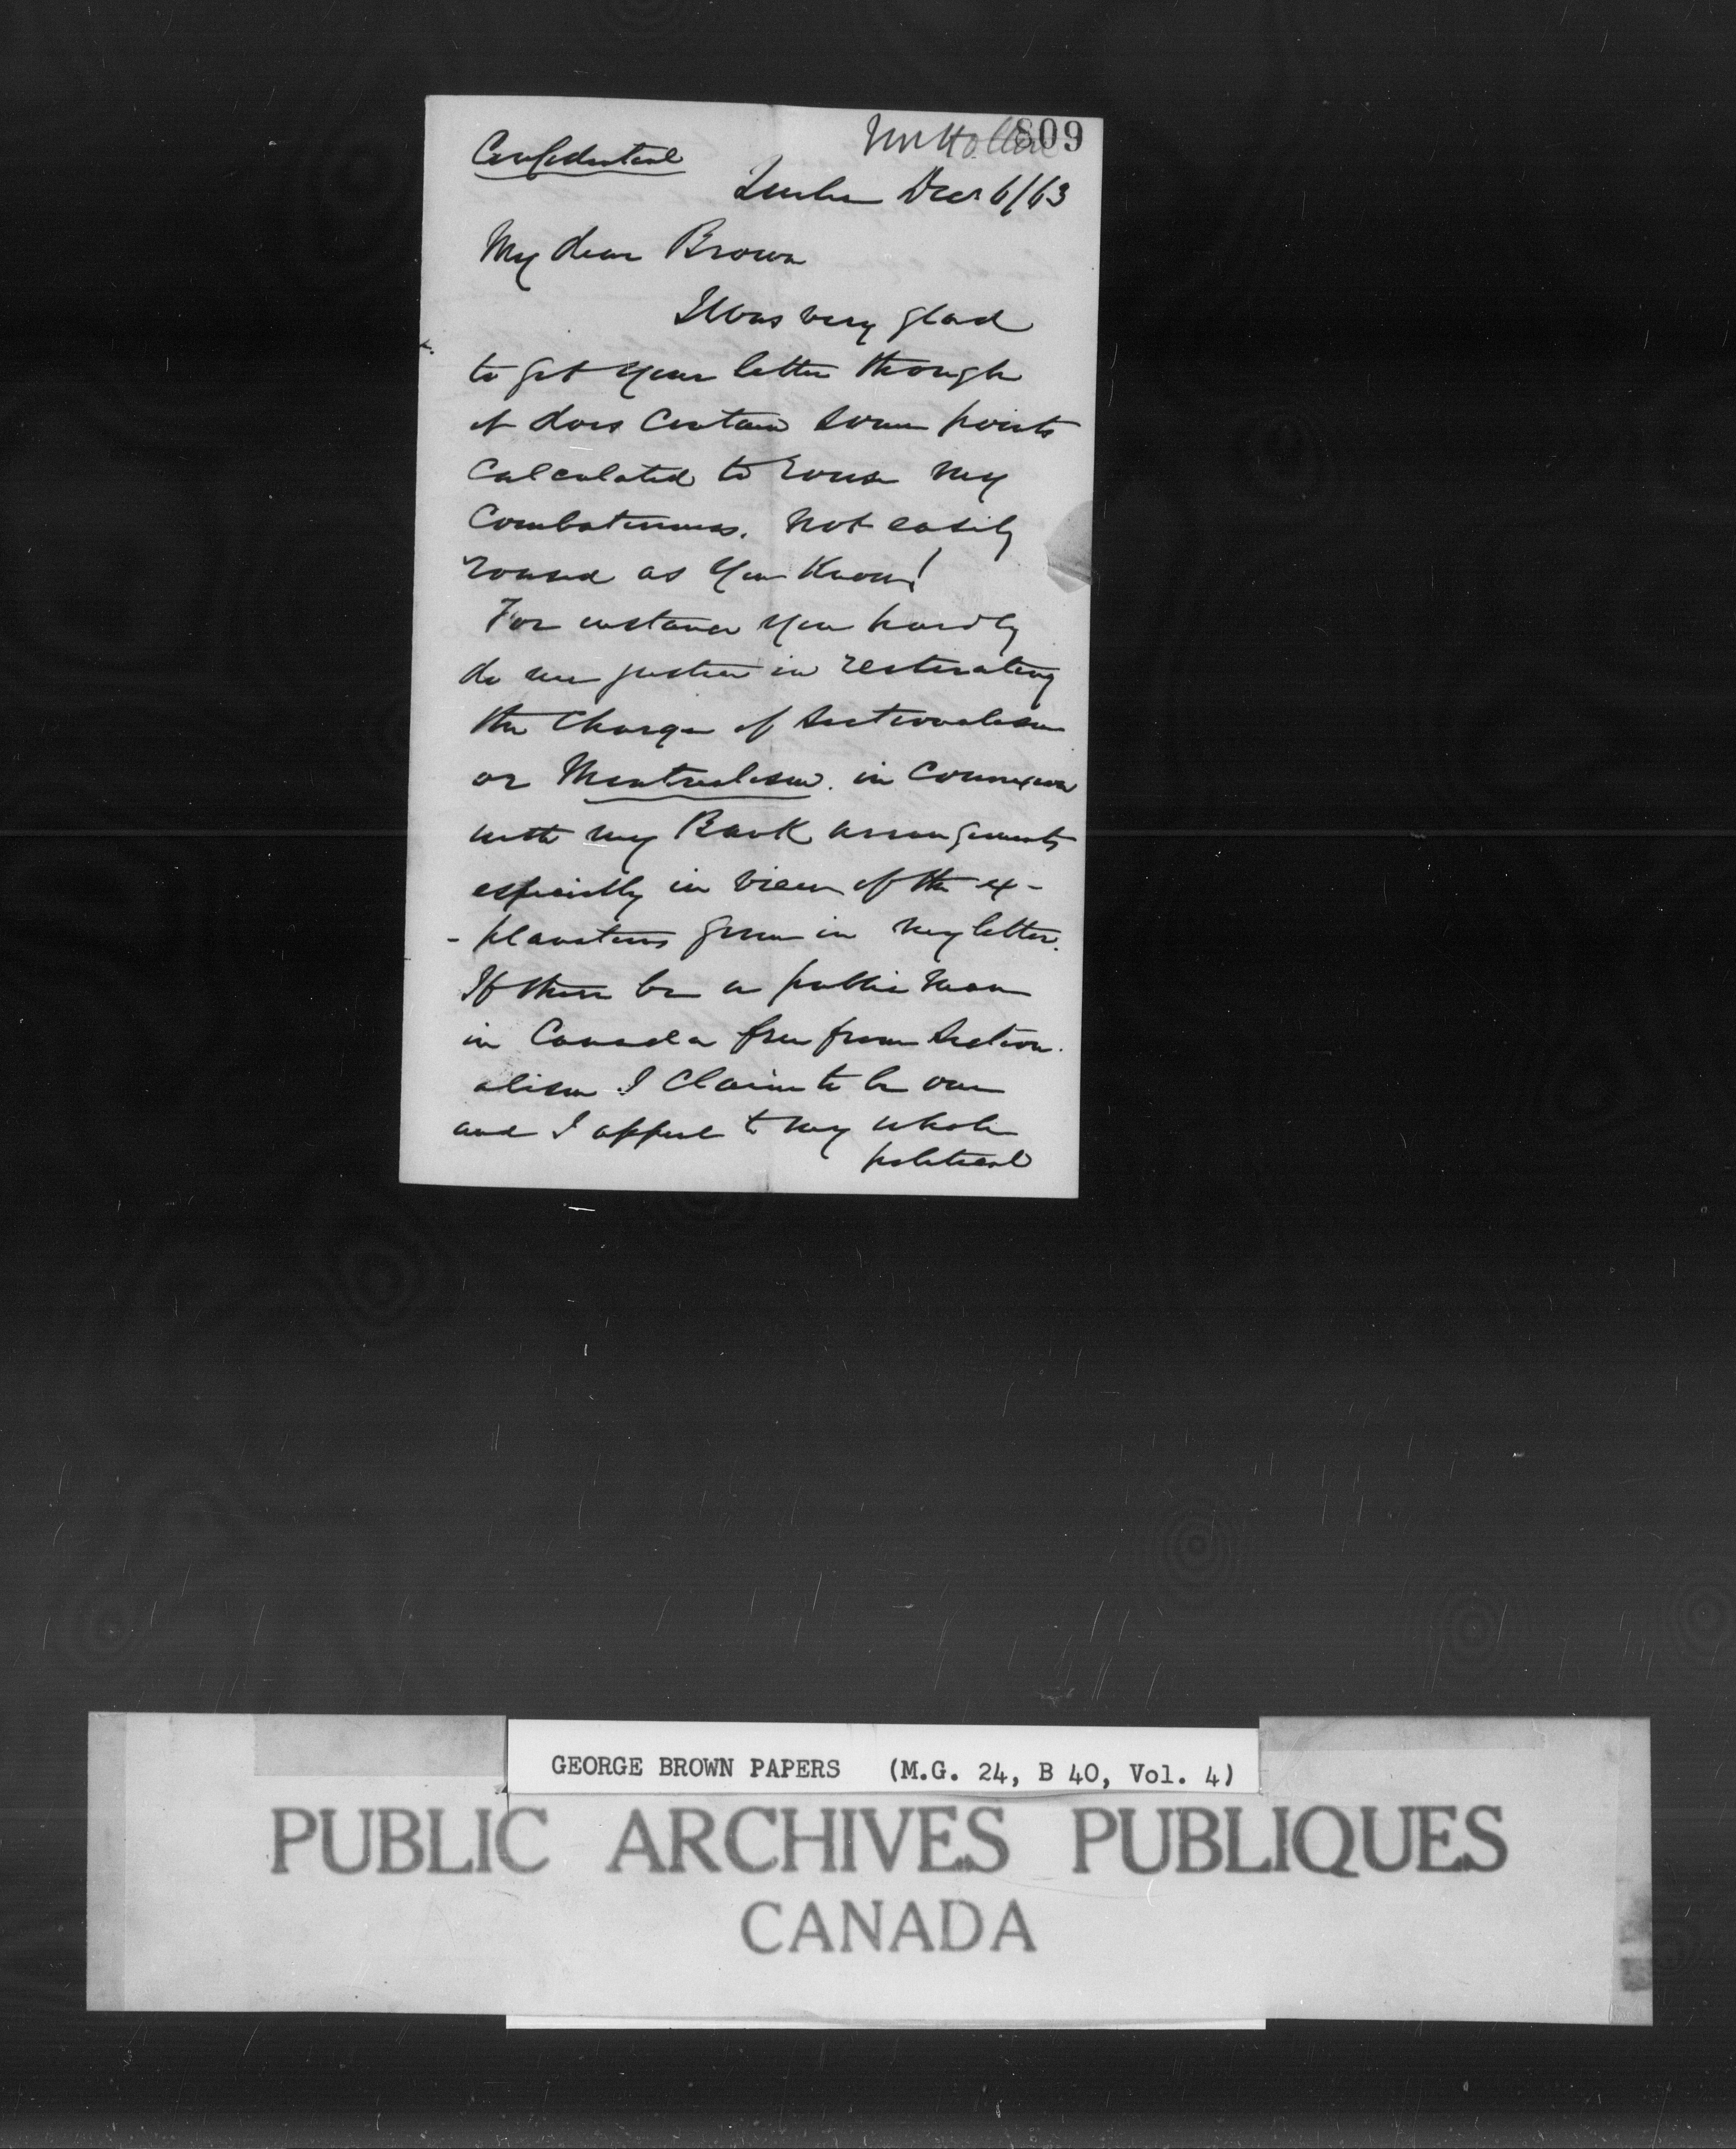 809
Confidential
Quebec Decr 6/63
My dear Brown
I was very glad
to get your letter though
it does contain some points
calculated to rouse my
Combativeness. Not easily
roused as you know!
For instance you hardly
do me justice in reiterating
the charge of Sectionalism
or Montrealism in connexion
with my Bank arrangements
especially in view of the ex-
-planations given in my letter.
If there be a public man
in Canada free from Section-
alism I claim to be one
and I appeal to my whole
political
GEORGE BROWN PAPERS (M.G. 24, B 40, Vol. 4)
PUBLIC ARCHIVES PUBLIQUES
CANADA